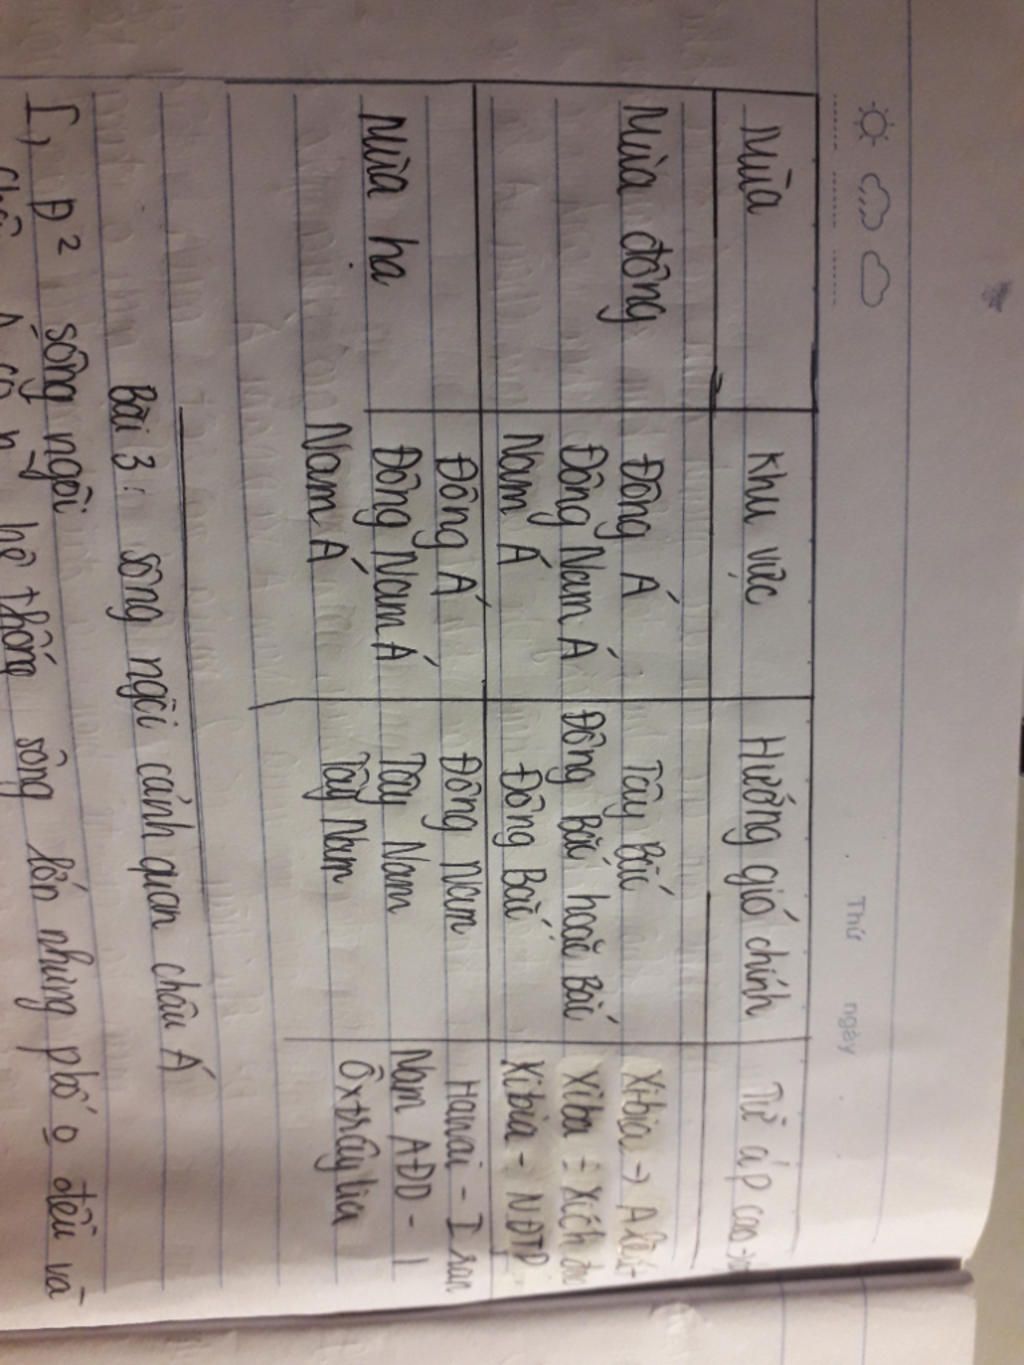 Thứ ngày
Mùa Khu vực Hướng gió chính Từ áp cao
Mùa đông Đông Á Tây Bắc Xibia → Alêut
Đông Nam Á Đông Bắc hoặc Bắc Xiba - Xích đạo
Nam Á Đông Bắc Xibia - NĐTD
Đông Á Đông Nam Hawai - Iran
Mùa hạ Đông Nam Á Tây Nam Nam AĐD - I
Nam Á Tây Nam Ôxtrâylia
Bài 3: sông ngòi cảnh quan châu Á
I, Đ² sông ngòi
Á có n hệ thống sông lớn nhưng phố o đều và